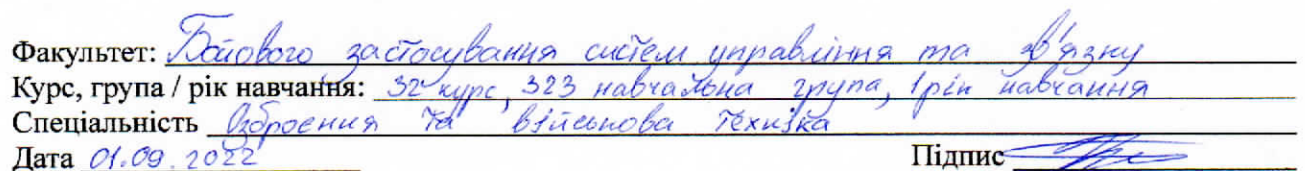 Факультет: Бойового застосування систем управління та зв'язку
Курс, група / рік навчання: 32 курс, 323 навчальна група, 1 рік навчання
Спеціальність Озброєння та військова техніка
Дата 01.09.2022 Підпис